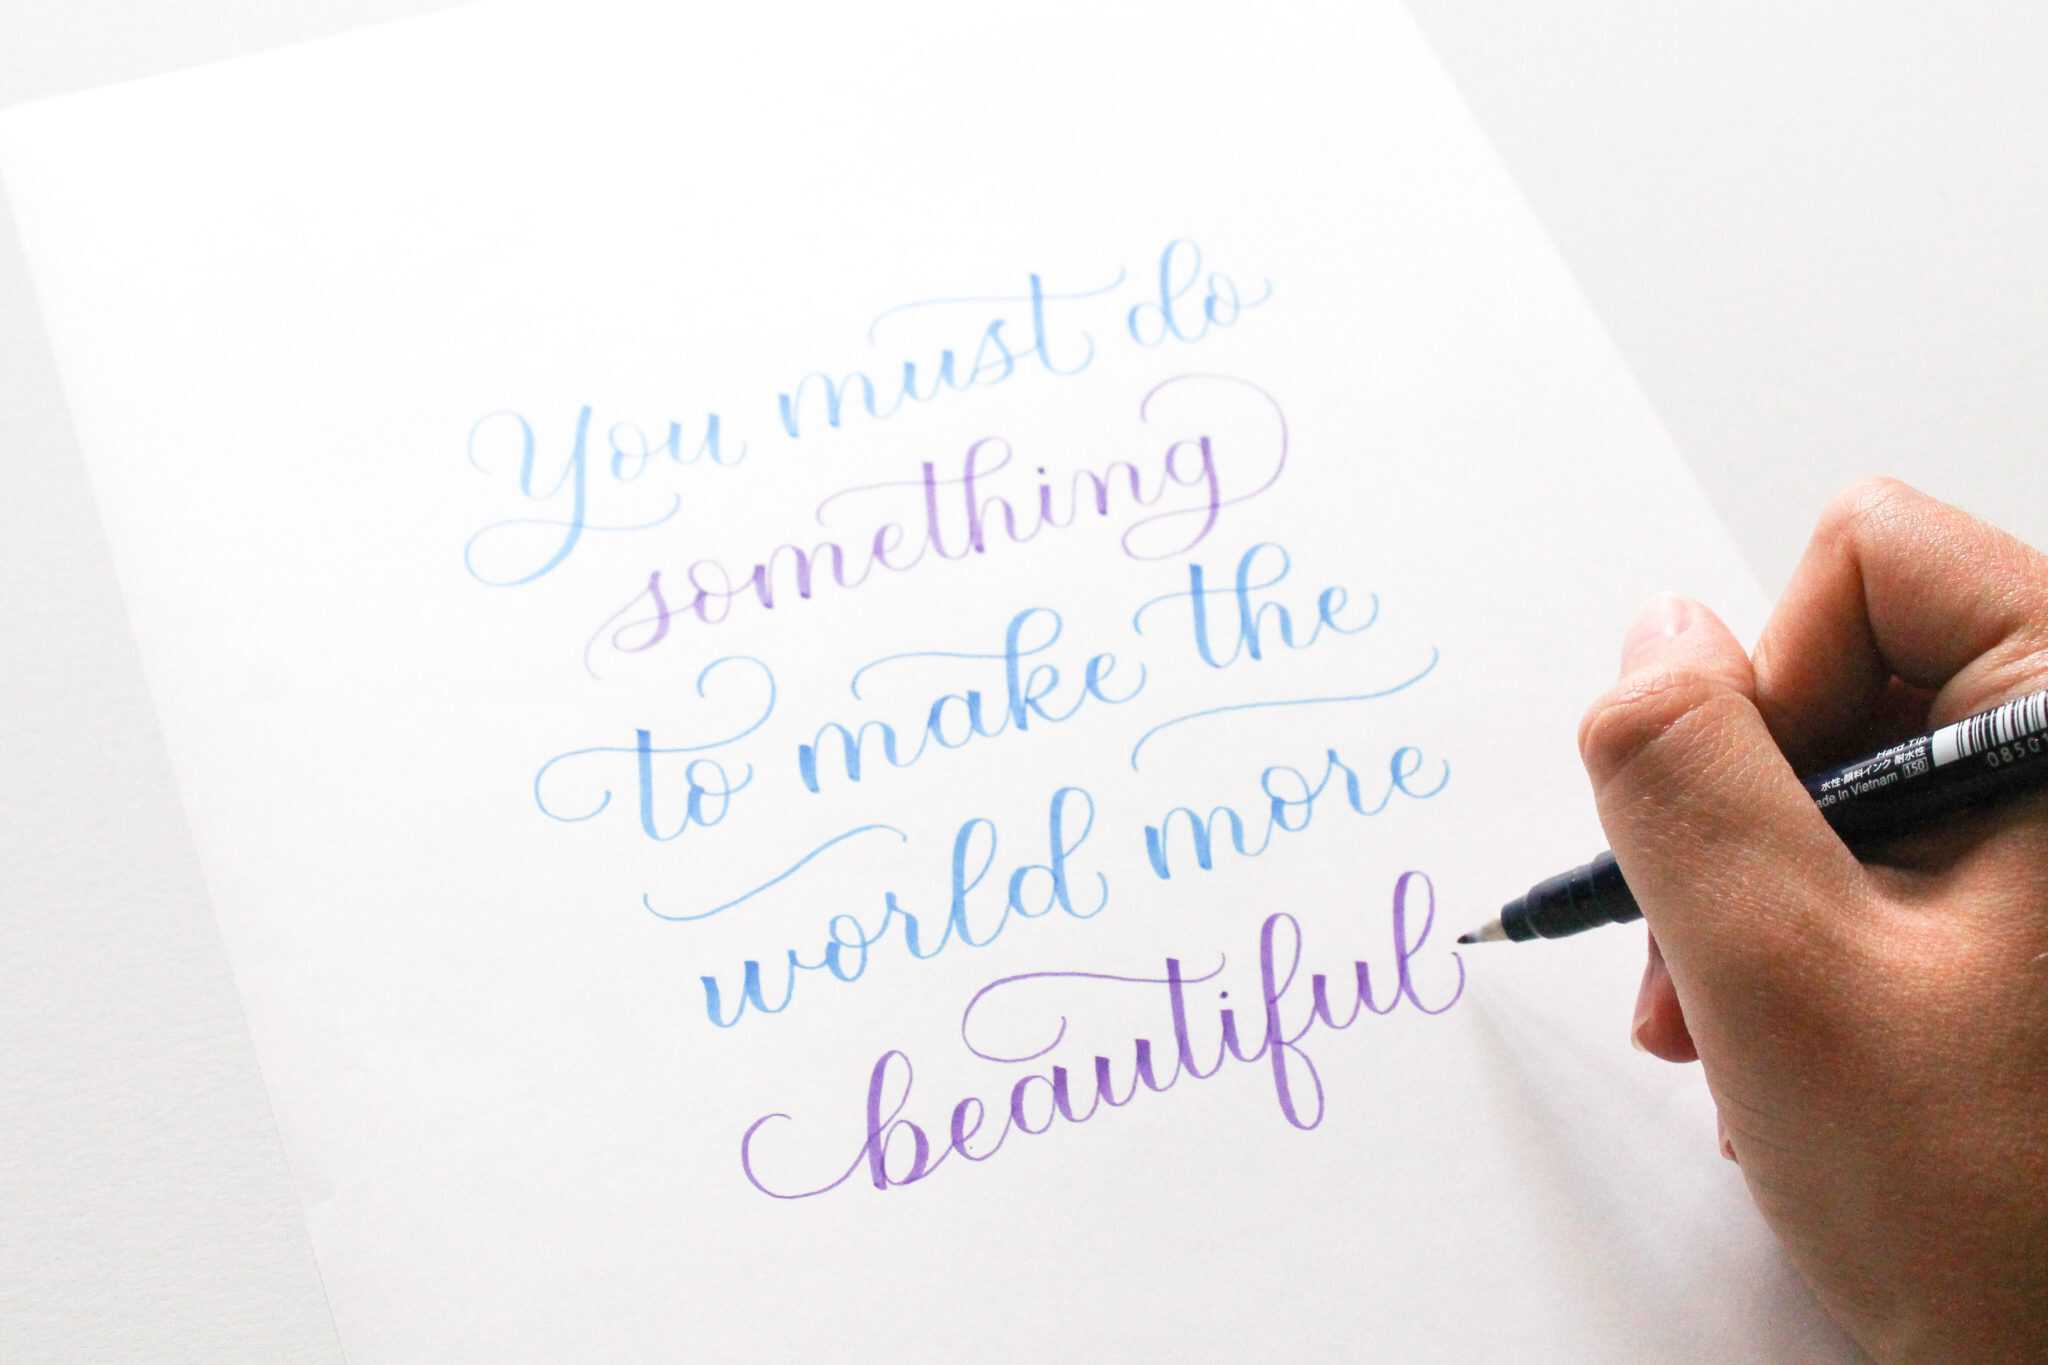 You must do
something
to make the
world more
beautiful
Hard Tip
水性・顔料インク 耐水性
150
ade In Vietnam
0850